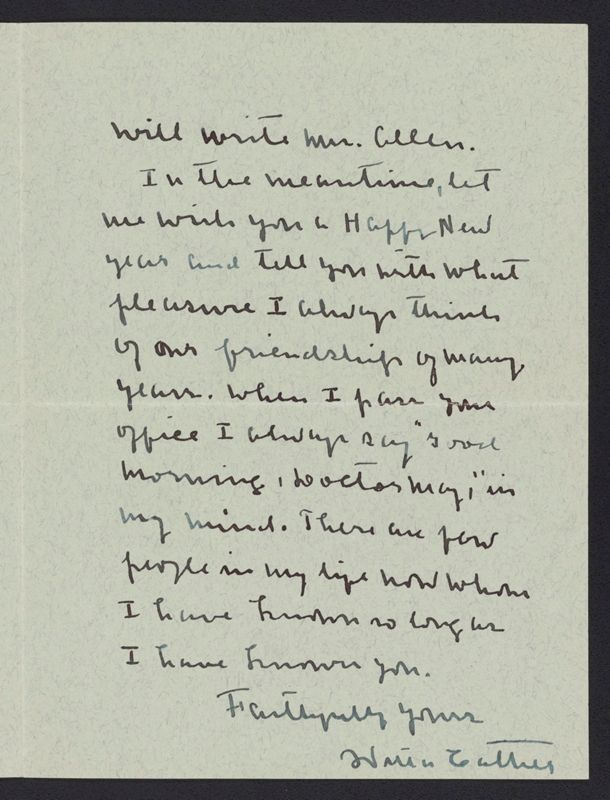 will write Mr. Allen.
In the meantime, let
me wish you a Happy New
year and tell you with what
pleasure I always think
of our friendship of many
years. When I pass your
office I always say "Good
morning, Doctor May," in
my mind. There are few
people in my life now whom
I have known so long as
I have known you.
Faithfully yours
Willa Cather